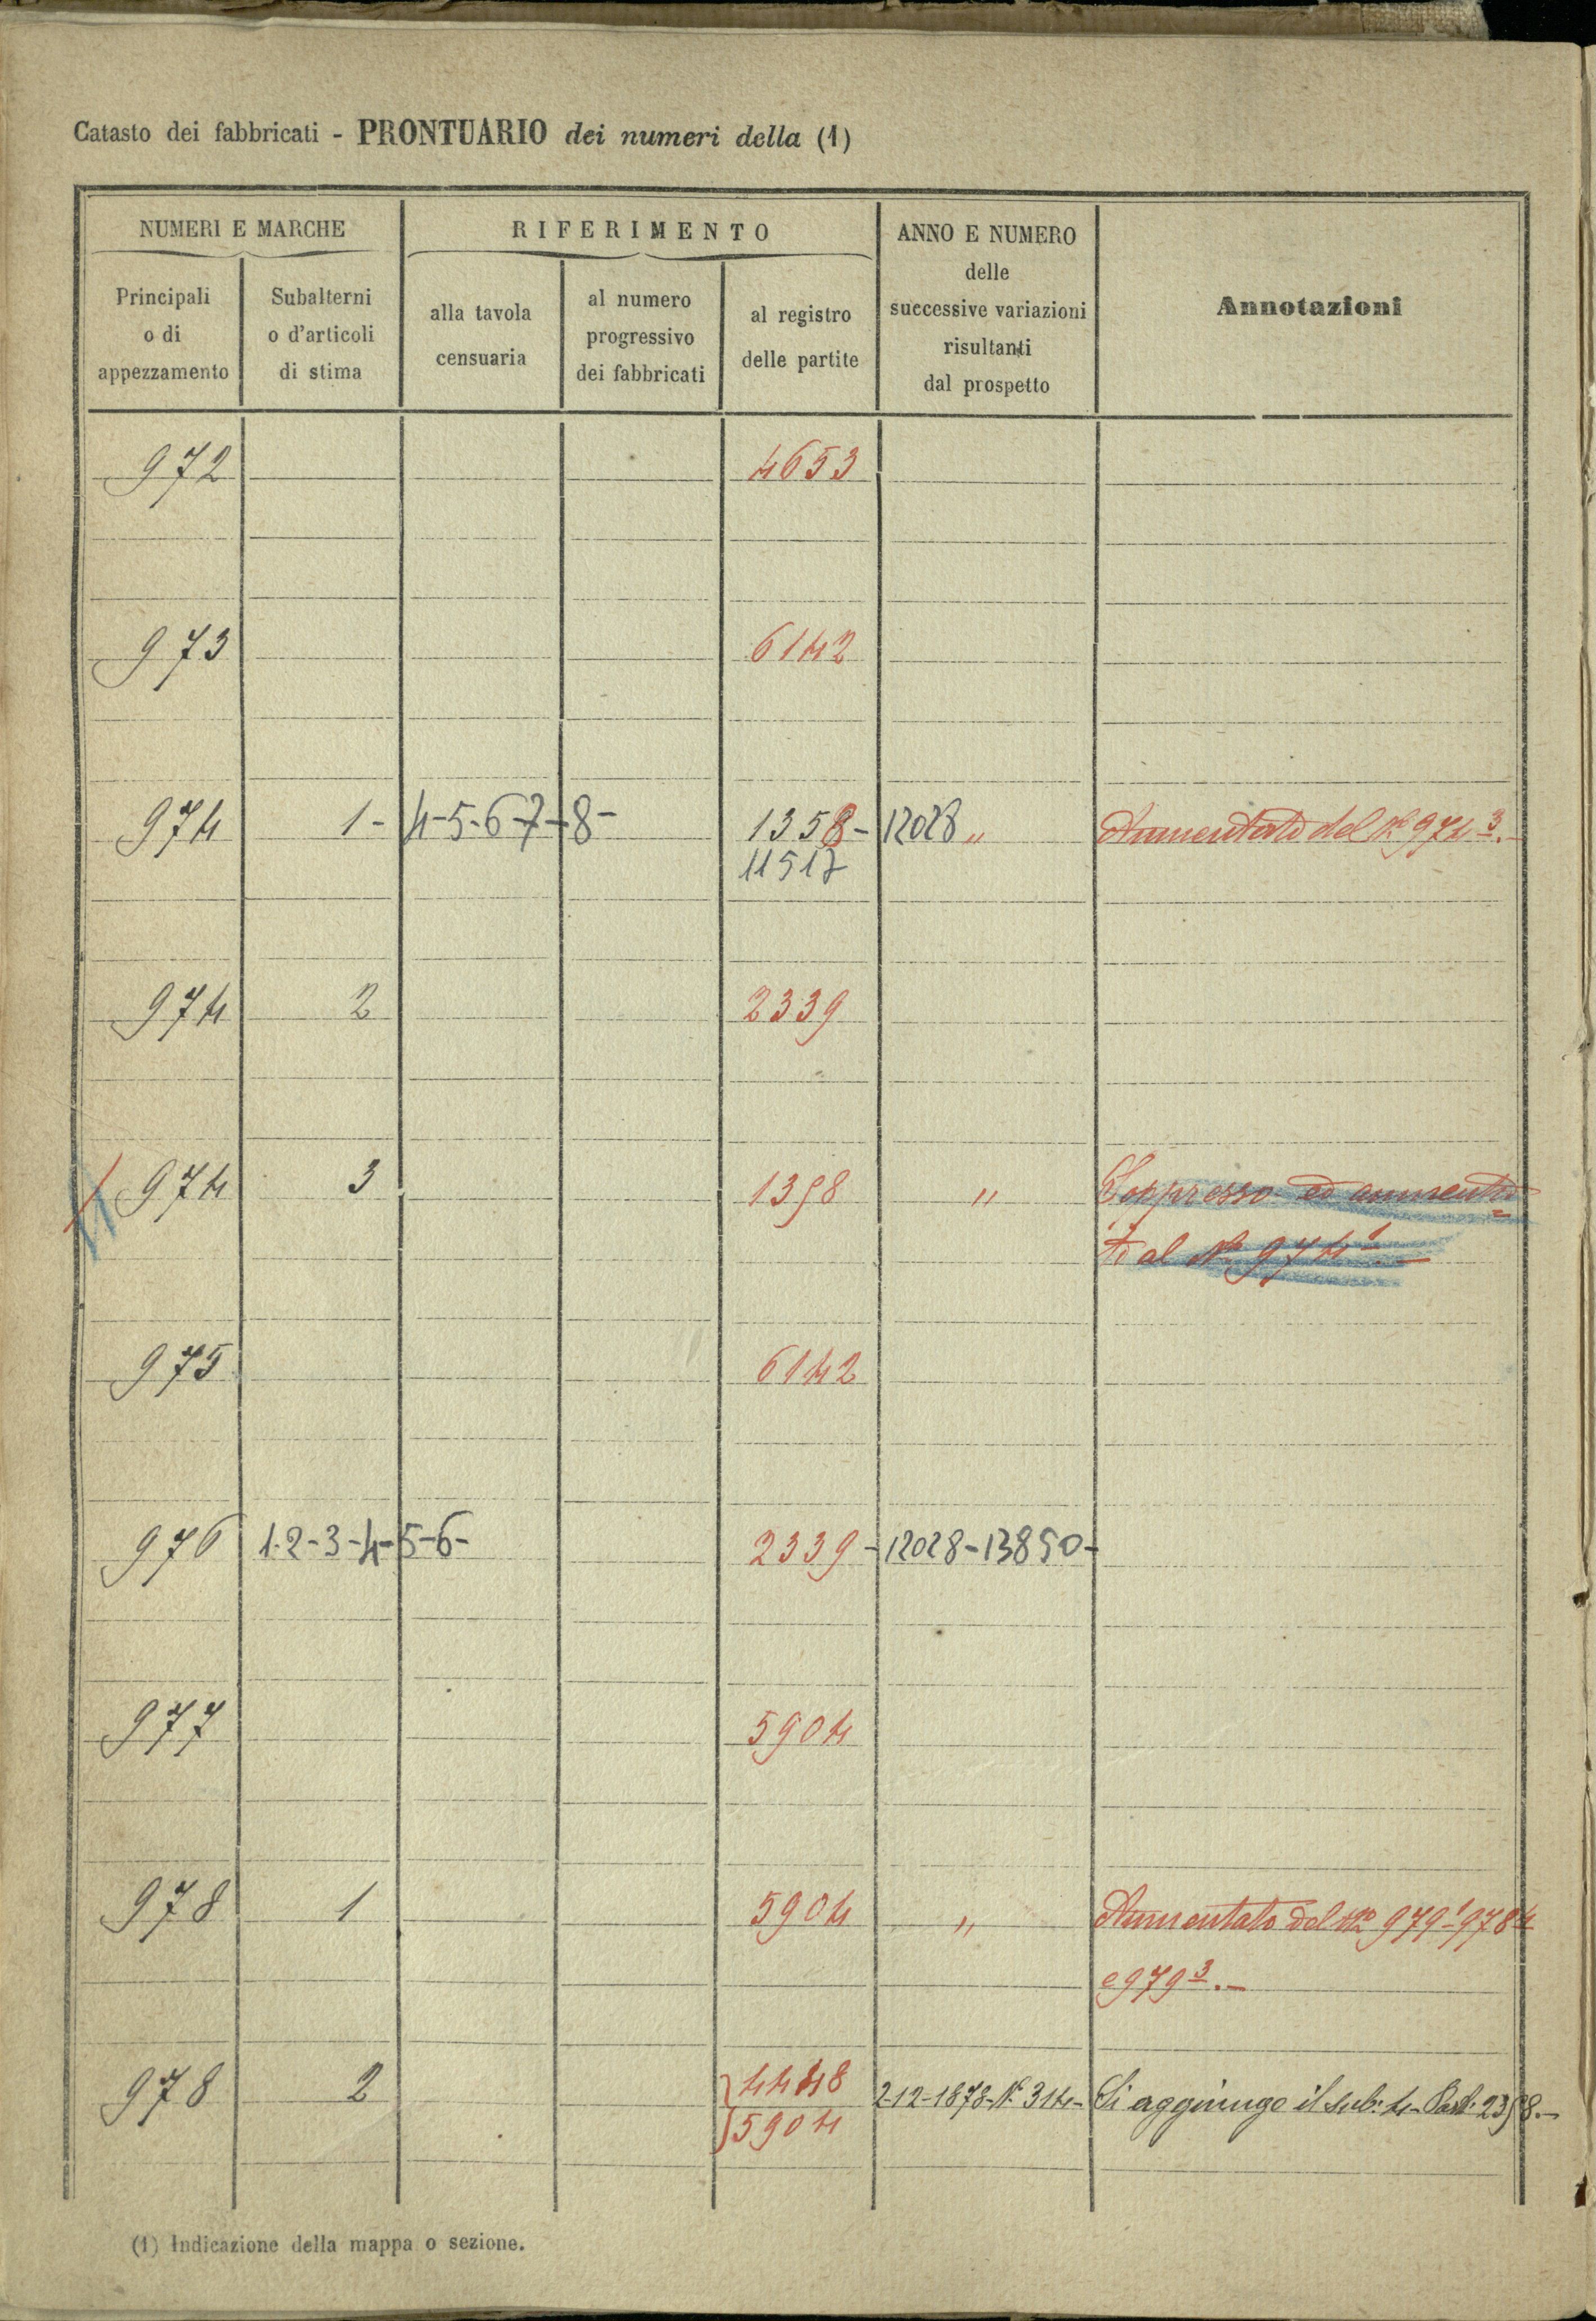 Catasto dei fabbricati - PRONTUARIO dei numeri della (1)
NUMERI E MARCHE
RIFERIMENTO
ANNO E NUMERO
delle
successive variazioni
risultanti
dal prospetto
Annotazioni
Principali
o di
appezzamento
Subalterni
o d'articoli
di stima
alla tavola
censuaria
al numero
progressivo
dei fabbricati
al registro
delle partite
972 4653
973 6142
974 1- 4-5-6-7-8- 1358- 12028 " Aumentato del No 974 3.-
11517
974 2 2339
974 3 1358 " Soppresso ed aumenta=
to al No 974 1
975 6142
976 1-2-3-4-5-6- 2339-12028-13850-
977 5904
978 1 5904 " Aumentato del No 979 1-978 4
e 979 3.-
978 2 4448 2-12-1878-No 314- Si aggiunge il sub: 4- Part. 2358.-
5904
(1) Indicazione della mappa o sezione.